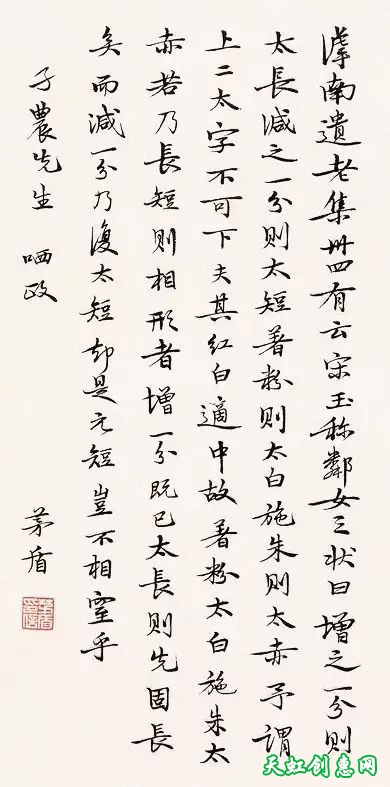 滹南遺老集卅四有云宋玉称鄰女之状曰增之一分則
太長減之一分則太短著粉則太白施朱則太赤予謂
上二太字不可下夫其红白適中故著粉太白施朱太
赤若乃長短則相形者增一分既已太長則先固長
矣而減一分乃復太短却是元短豈不相窒乎
子農先生 哂政
茅盾
天虹创意网